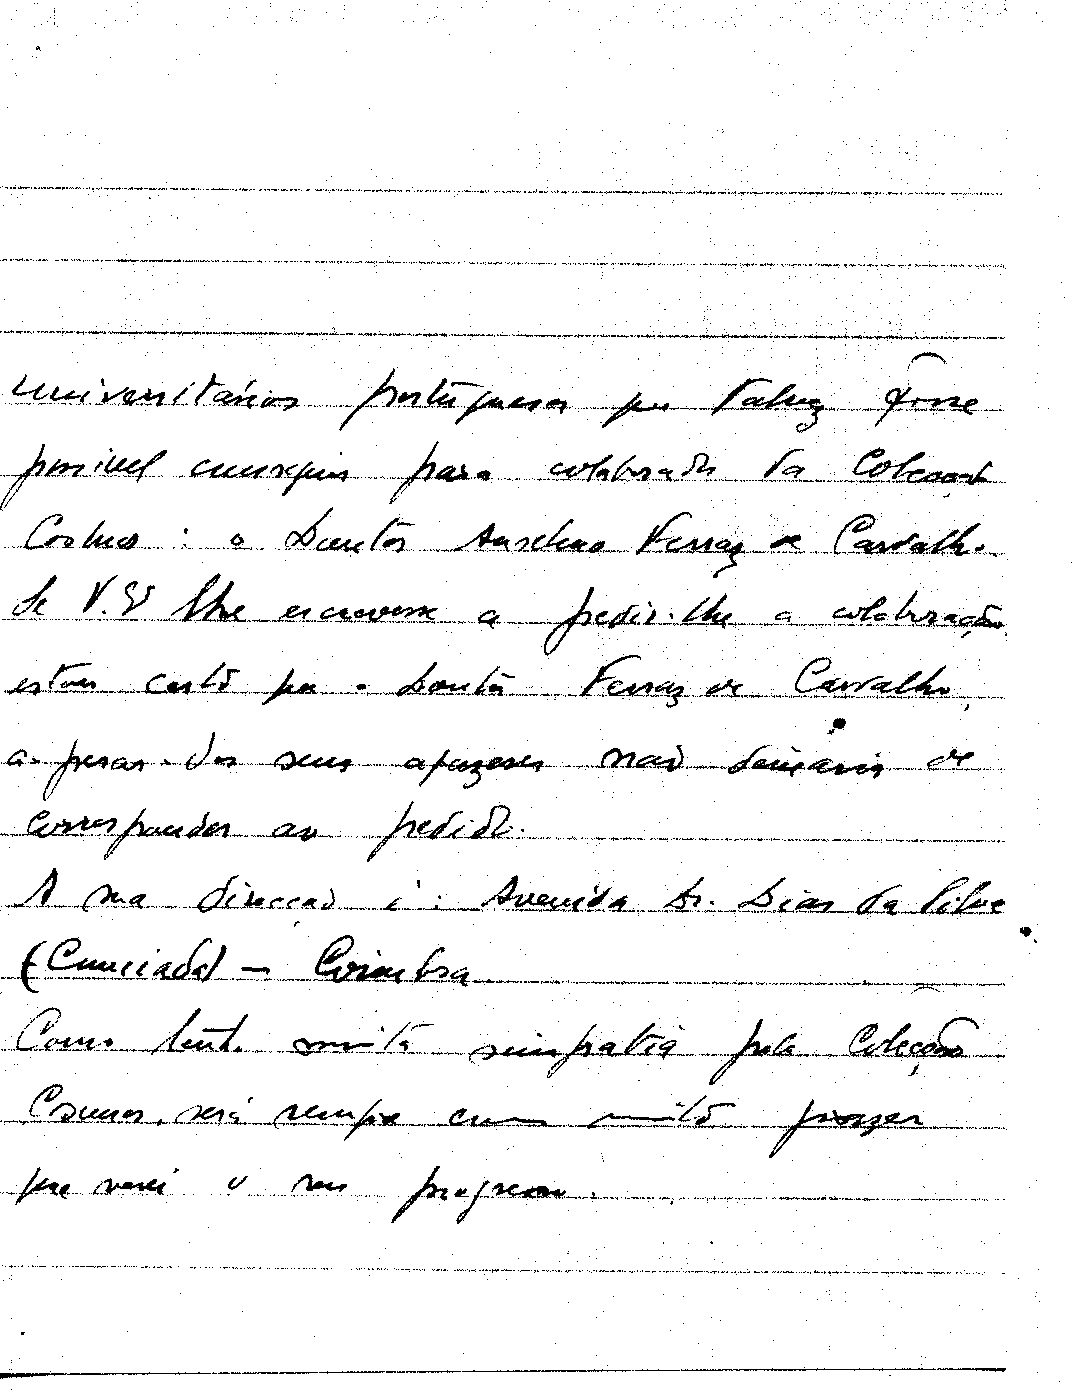 universitários portugueses que talvez fosse
possivel conseguir para colaborador da Colecção
Cosmos : o Doutor Anselmo Ferraz de Carvalho.
Se V. Ex lhe escrevesse a pedir-lhe a colaboração
estou certo que o Doutor Ferraz de Carvalho,
a-pesar-dos seus afazeres não deixaria de
corresponder ao pedido.
A sua direcção é : Avenida Dr. Dias da Silva
(Cumeada) — Coimbra
Como tenho muita simpatia pela Colecção
Cosmos, será sempre com muito prazer
que verei o seu progresso.